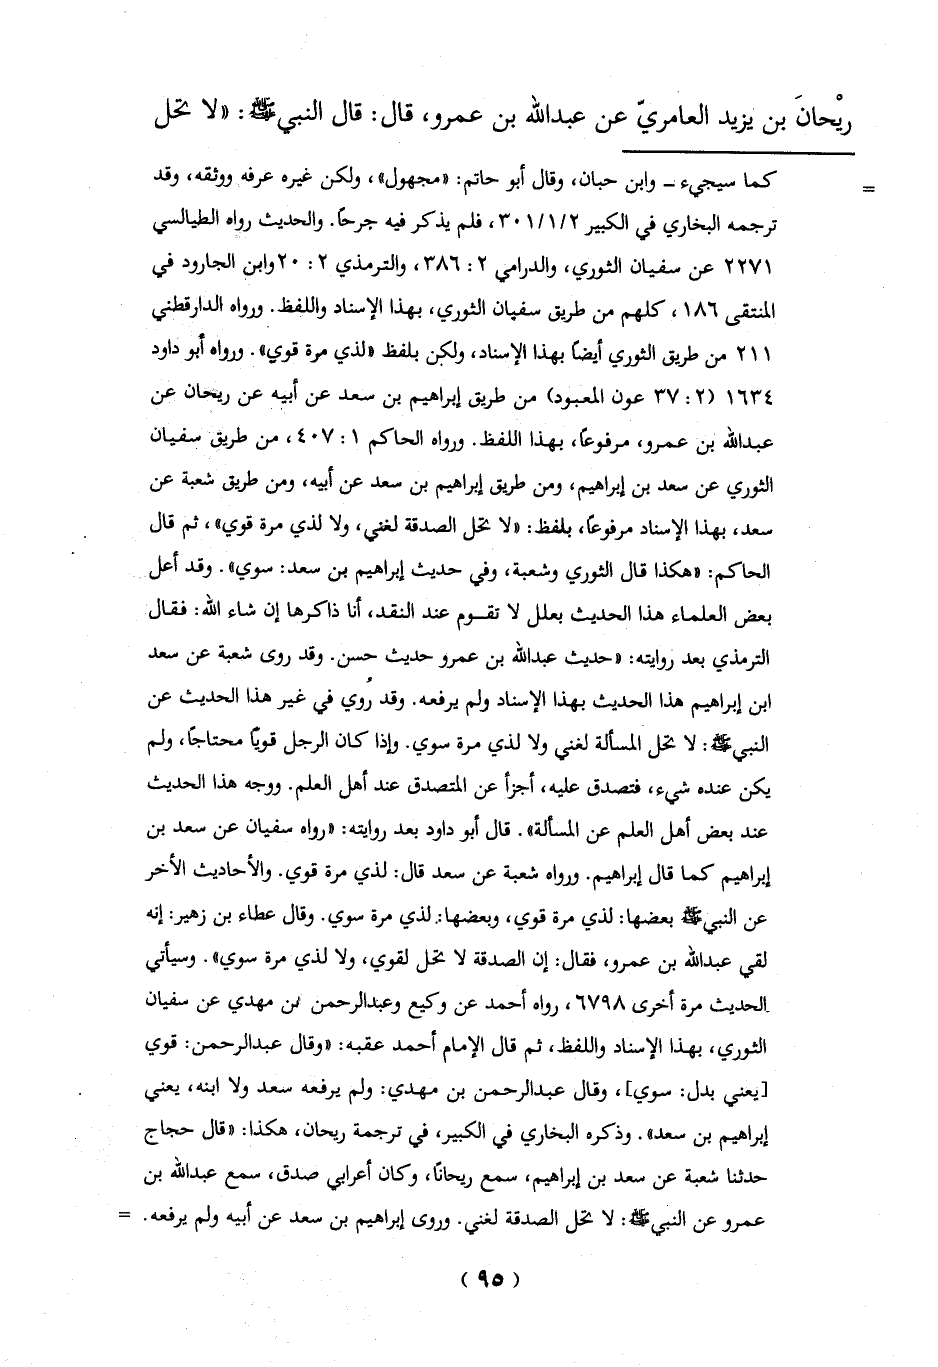 ريْحانَ بن يزيد العامريّ عن عبدالله بن عمرو، قال: قال النبي ﷺ: «لا تحل
= كما سيجيء ــ وابن حبان، وقال أبو حاتم: «مجهول»، ولكن غيره عرفه ووثقه، وقد
ترجمه البخاري في الكبير ٣٠١/١/٢، فلم يذكر فيه جرحاً. والحديث رواه الطيالسي
٢٢٧١ عن سفيان الثوري، والدارمي ٢: ٣٨٦، والترمذي ٢: ٢٠ وابن الجارود في
المنتقى ١٨٦، كلهم من طريق سفيان الثوري، بهذا الإسناد واللفظ. ورواه الدارقطني
٢١١ من طريق الثوري أيضاً بهذا الإسناد، ولكن بلفظ «لذي مرة قوي». ورواه أبو داود
١٦٣٤ (٢: ٣٧ عون المعبود) من طريق إبراهيم بن سعد عن أبيه عن ريحان عن
عبدالله بن عمرو، مرفوعاً، بهذا اللفظ. ورواه الحاكم ١: ٤٠٧، من طريق سفيان
الثوري عن سعد بن إبراهيم، ومن طريق إبراهيم بن سعد عن أبيه، ومن طريق شعبة عن
سعد، بهذا الإسناد مرفوعاً، بلفظ: «لا تحل الصدقة لغني، ولا لذي مرة قوي»، ثم قال
الحاكم: «هكذا قال الثوري وشعبة، وفي حديث إبراهيم بن سعد: سوي». وقد أعل
بعض العلماء هذا الحديث بعلل لا تقوم عند النقد، أنا ذاكرها إن شاء الله: فقال
الترمذي بعد روايته: «حديث عبدالله بن عمرو حديث حسن. وقد روى شعبة عن سعد
ابن إبراهيم هذا الحديث بهذا الإسناد ولم يرفعه. وقد رُوي في غير هذا الحديث عن
النبي ﷺ: لا تحل المسألة لغني ولا لذي مرة سوي. وإذا كان الرجل قوياً محتاجاً، ولم
يكن عنده شيء، فتصدق عليه، أجزأ عن المتصدق عند أهل العلم. ووجه هذا الحديث
عند بعض أهل العلم عن المسألة». قال أبو داود بعد روايته: «رواه سفيان عن سعد بن
إبراهيم كما قال إبراهيم. ورواه شعبة عن سعد قال: لذي مرة قوي. والأحاديث الأخر
عن النبي ﷺ بعضها: لذي مرة قوي، وبعضها: لذي مرة سوي. وقال عطاء بن زهير: إنه
لقي عبدالله بن عمرو، فقال: إن الصدقة لا تحل لقوي، ولا لذي مرة سوي». وسيأتي
الحديث مرة أخرى ٦٧٩٨، رواه أحمد عن وكيع وعبدالرحمن بن مهدي عن سفيان
الثوري، بهذا الإسناد واللفظ، ثم قال الإمام أحمد عقبه: «وقال عبدالرحمن: قوي
[يعني بدل: سوي]، وقال عبدالرحمن بن مهدي: ولم يرفعه سعد ولا ابنه، يعني
إبراهيم بن سعد». وذكره البخاري في الكبير، في ترجمة ريحان، هكذا: «قال حجاج
حدثنا شعبة عن سعد بن إبراهيم، سمع ريحاناً، وكان أعرابي صدق، سمع عبدالله بن
عمرو عن النبي ﷺ: لا تحل الصدقة لغني. وروى إبراهيم بن سعد عن أبيه ولم يرفعه. =
(٩٥)